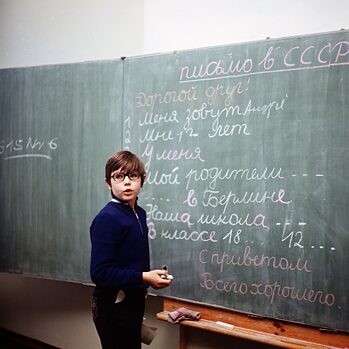 S 15 Nr 6
письмо в СССР
Дорогой друг!
1 Меня зовут Андрé
2 Мне 12 лет
У меня
Мой родители ---
.... в Берлине
Наша школа ....
В классе 18 ... 12 ....
С приветом
Всего хорошего.